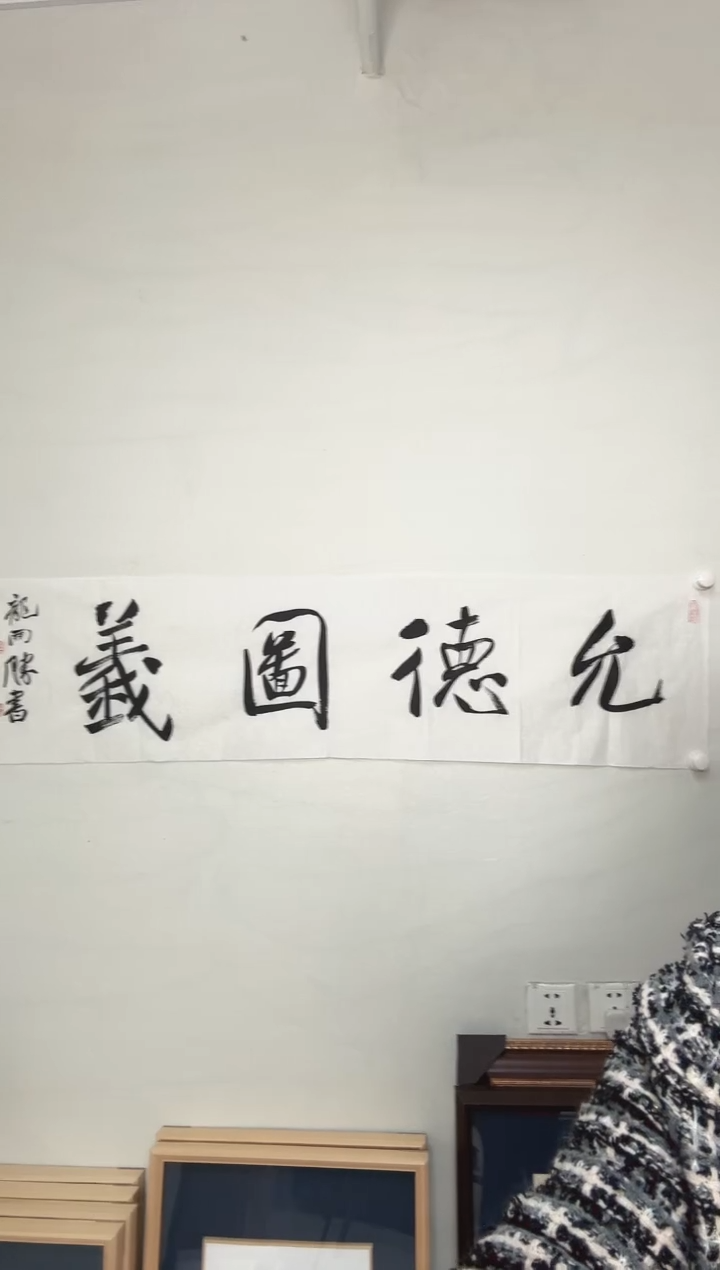 允德圖義
龍雨勝書